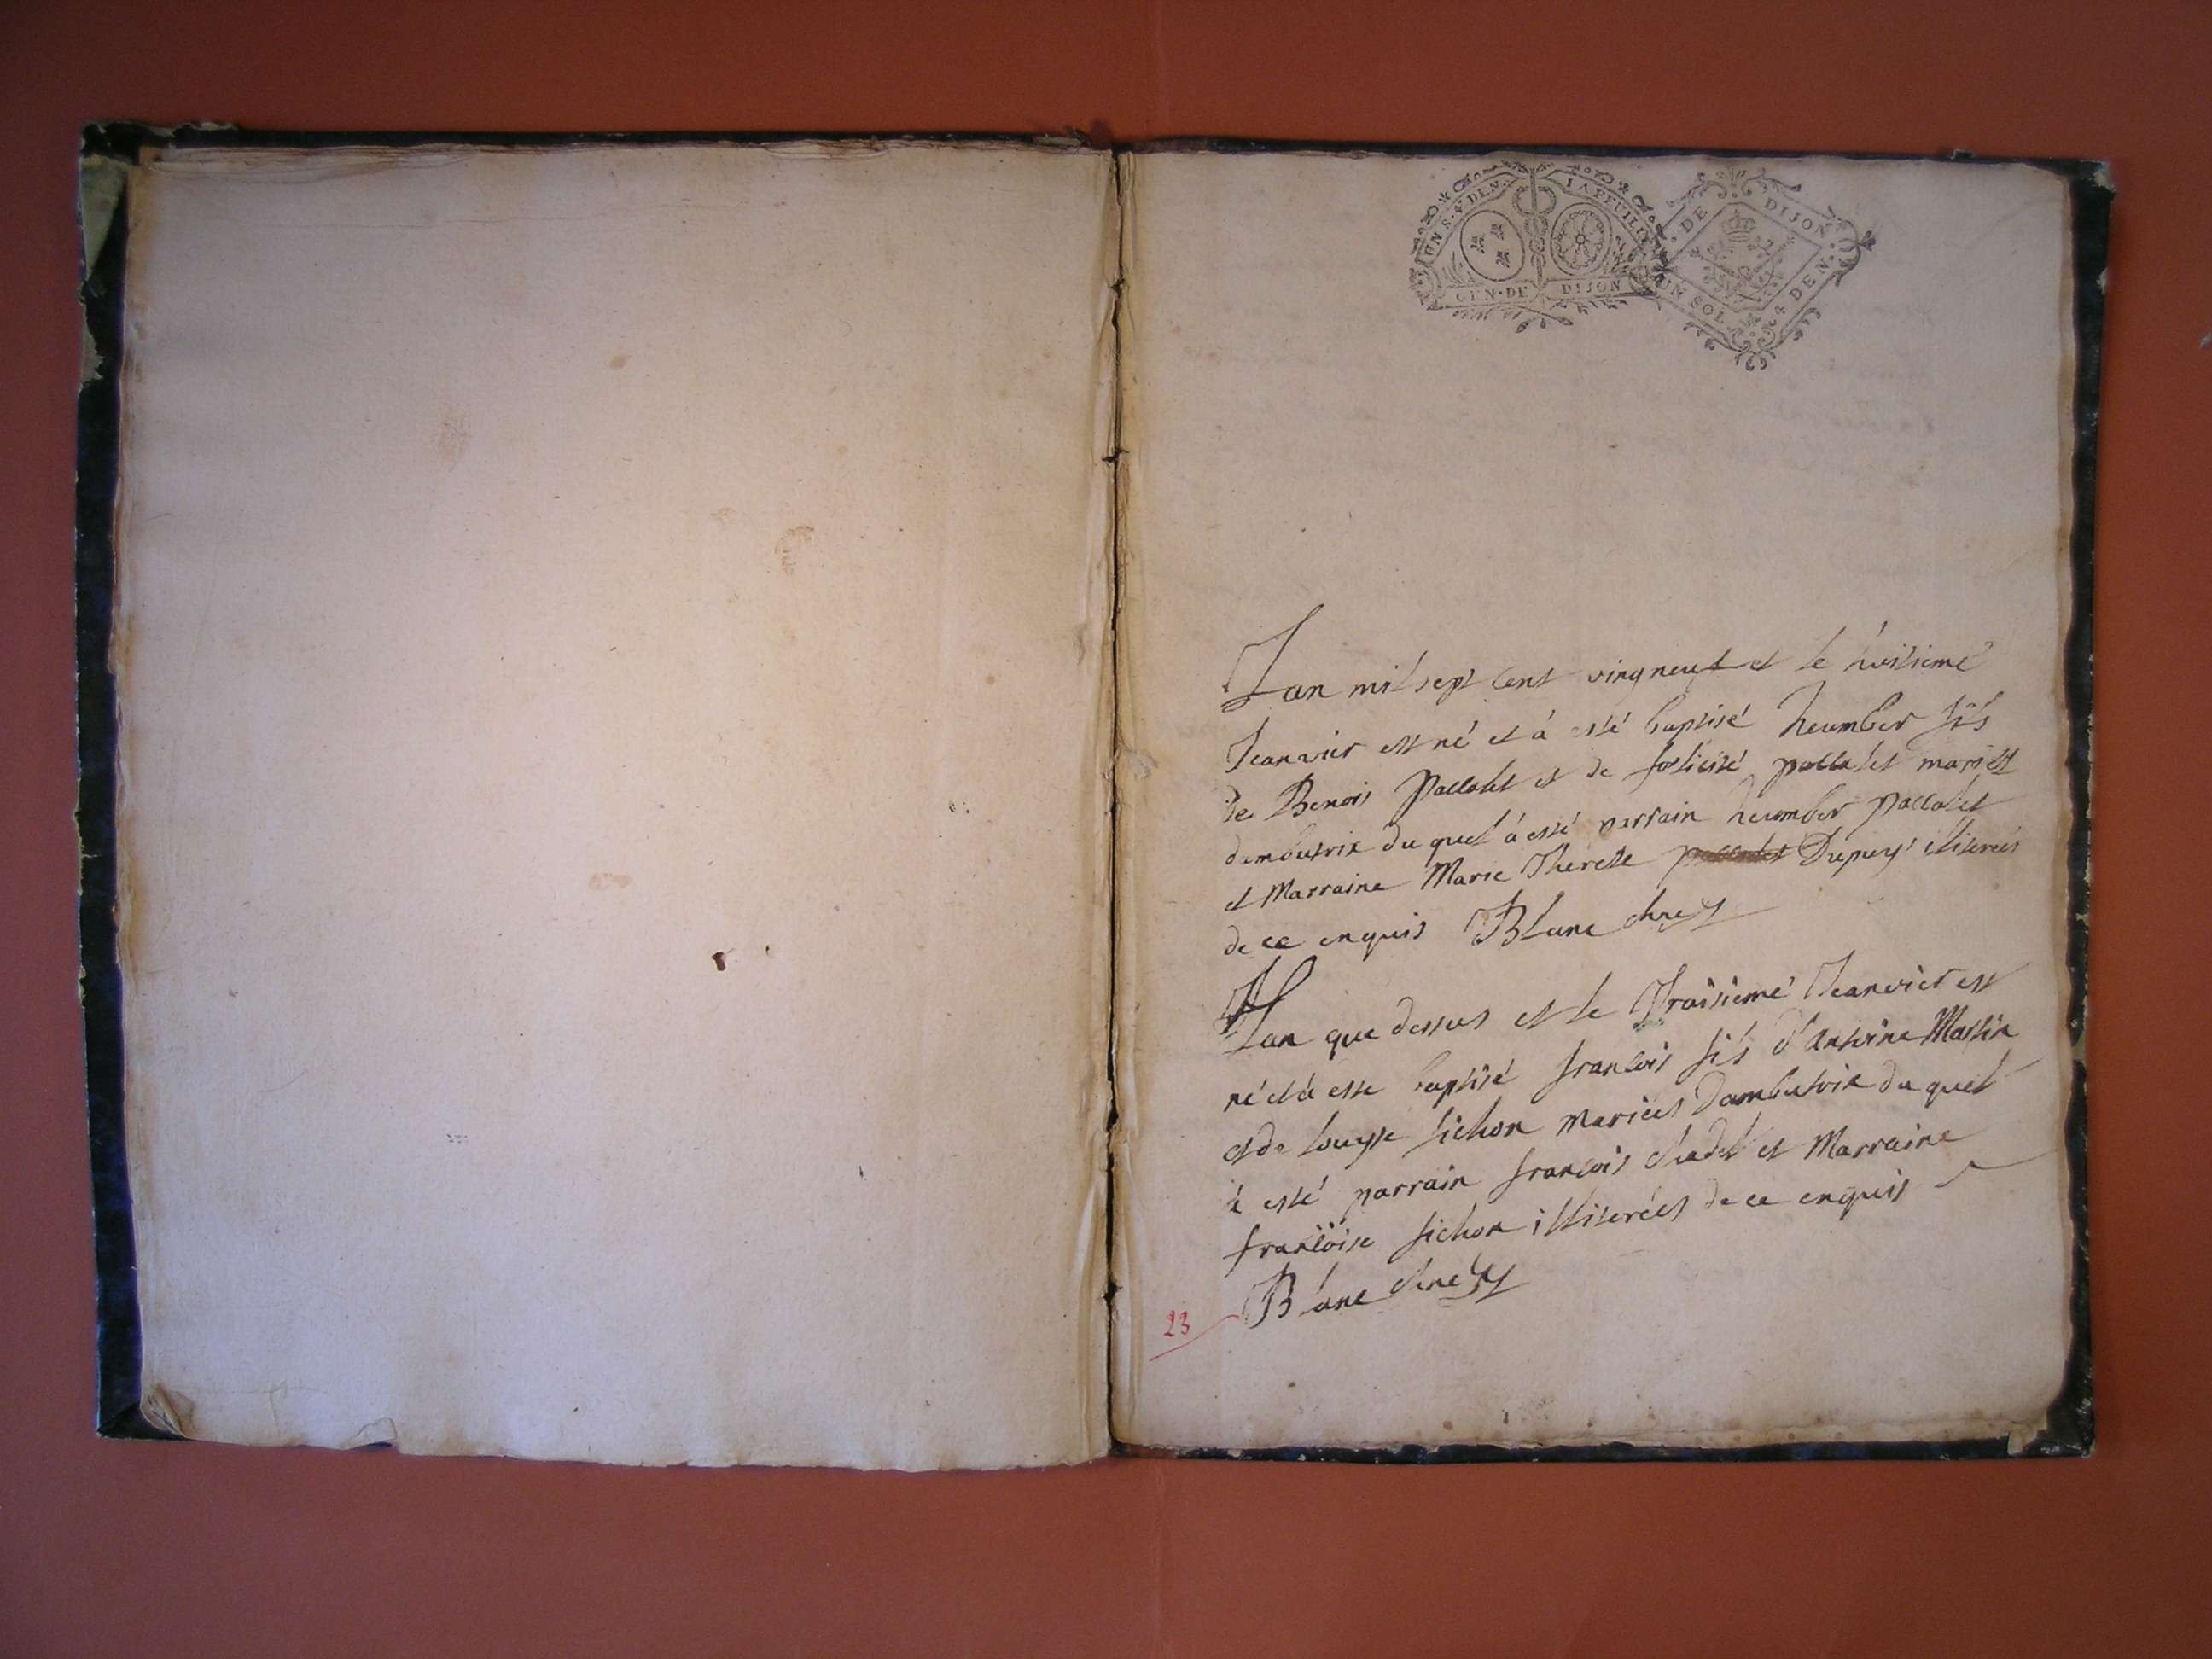 UN S. 4 DEN. LA FEUILLE
GEN. DE DIJON
DE DIJON
UN SOL 4 DEN.
Lan mil sept cent vingneuf et le huitieme
Jeanvier est né et à esté baptisé heumber fils
de Benois Pallatet et de felicité pallatet mariés
dambutrix du quel à esté parrain heumber pallatet
et Marraine Marie Therese Dupuy illiterés
de ce enquis Blanc
Lan que dessus et le Traisieme Jeanvier est
né et à esté baptisé francois fils d'Antoine Martin
et de Louyse sichon mariees Dambutrix du quel
à esté parrain francois chadel et Marraine
francoise sichon illiterées de ce enquis
Blanc
23